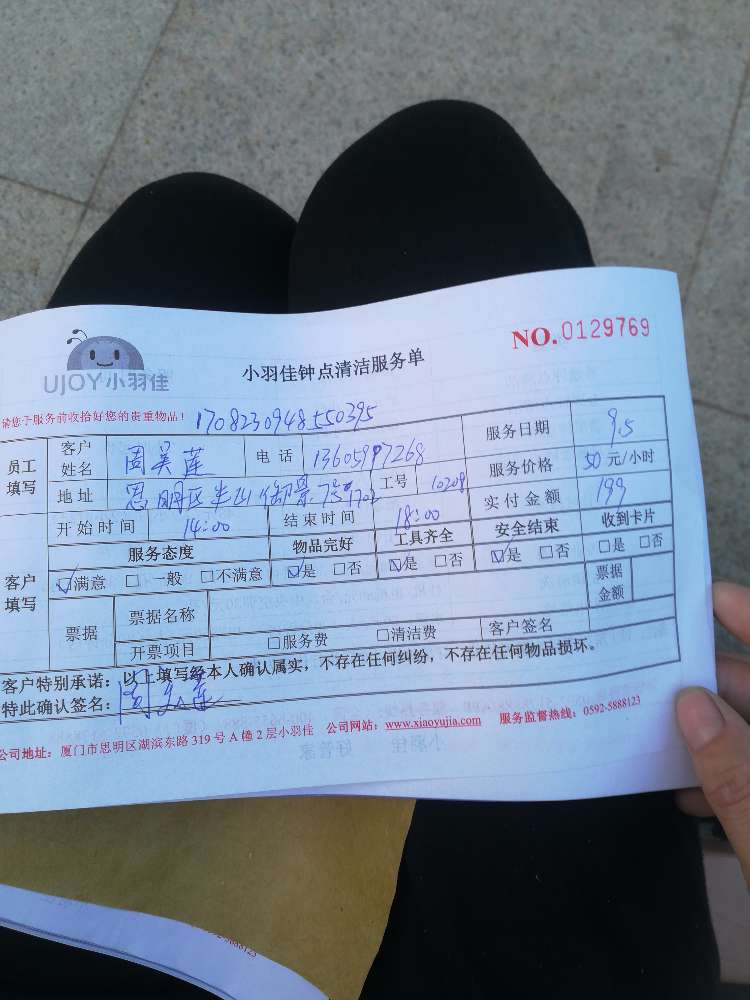 UJOY小羽佳
小羽佳钟点清洁服务单
NO.0129769
请您于服务前收拾好您的贵重物品! 1708230948550395
员工填写 客户姓名 周美莲 电话 13605997268 服务日期 9.5
地址 思明区半山御景7号1702 工号 10208 服务价格 50元/小时
开始时间 14:00 结束时间 18:00 实付金额 199
客户填写 服务态度 物品完好 工具齐全 安全结束 收到卡片
☑满意 □一般 □不满意 ☑是 □否 ☑是 □否 ☑是 □否 □是 □否
票据 票据名称 票据金额
开票项目 □服务费 □清洁费 客户签名
客户特别承诺:以上填写经本人确认属实,不存在任何纠纷,不存在任何物品损坏。
特此确认签名:周美莲
公司地址:厦门市思明区湖滨东路319号A幢2层小羽佳 公司网站:www.xiaoyujia.com 服务监督热线:0592-5888123